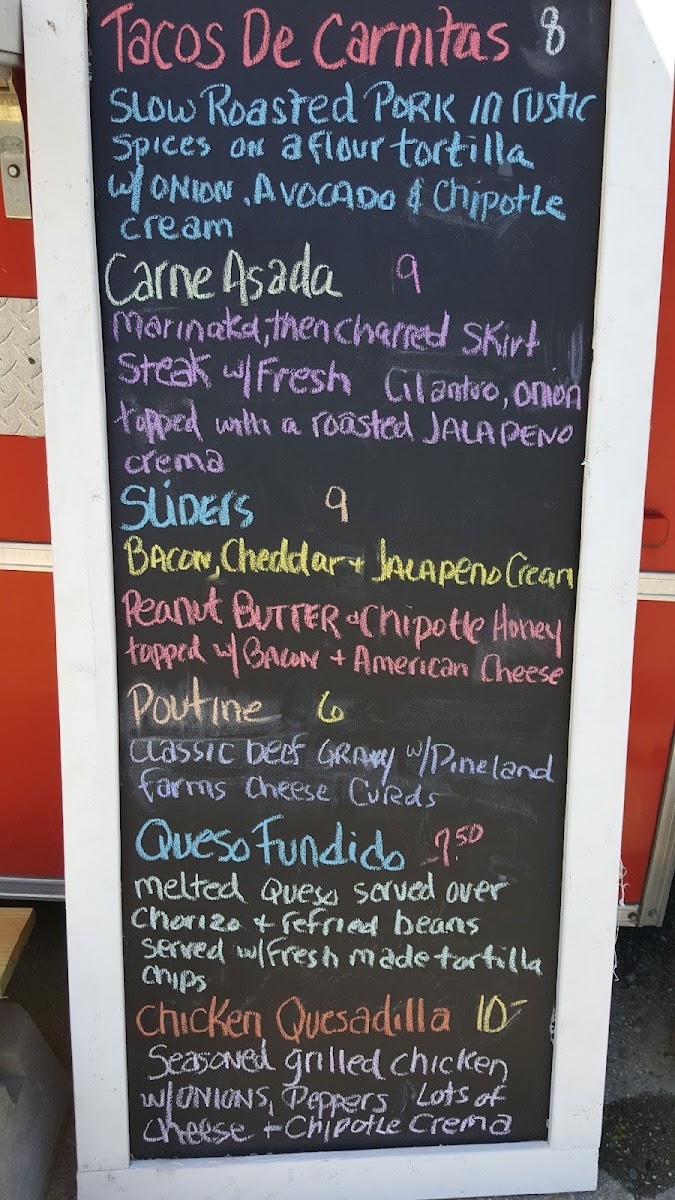 Tacos De Carnitas 8
Slow Roasted PORK in rustic
spices on a flour tortilla
w/ONION, AVOCADO & Chipotle
cream
Carne Asada 9
Marinated, then charred Skirt
Steak w/Fresh Cilantro, onion
topped with a roasted JALAPENO
crema
SLIDERS 9
BACON, Cheddar + JALAPENO Cream
Peanut BUTTER + Chipotle Honey
topped w/ BACON + American Cheese
Poutine 6
Classic beef GRAVY w/Pineland
farms Cheese Curds
Queso Fundido 7.50
melted Queso served over
Chorizo + refried beans
served w/Fresh made tortilla
chips
Chicken Quesadilla 10-
Seasoned grilled chicken
w/ONIONS, Peppers Lots of
Cheese + Chipotle Crema